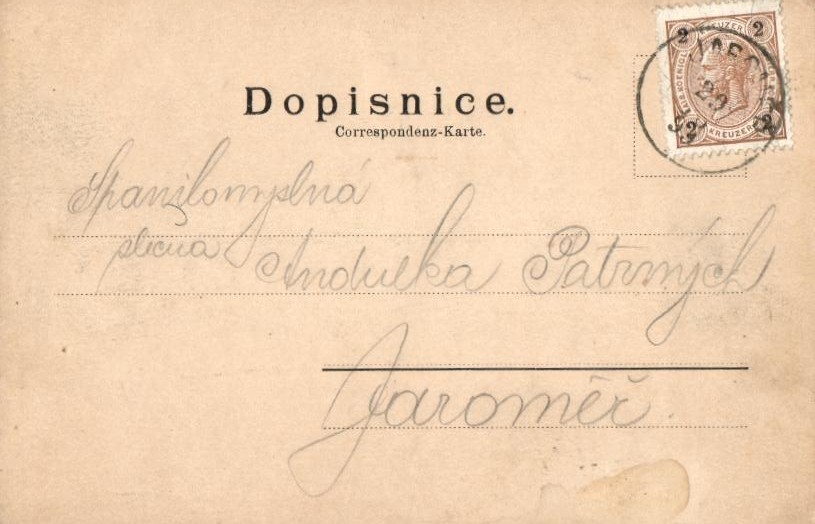 Dopisnice.
Correspondenz-Karte.
2 KREUZER 2
2 KREUZER 2
Spanilomyslná
slečna Andulka Patrných
Jaroměř.